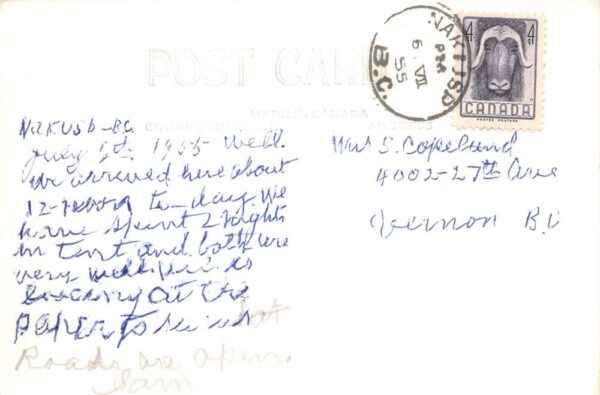 POST CARD
MADE IN CANADA
CORRESPONDENCE ADDRESS
NAKUSP
PM
6 VII
55
B.C.
4¢ 4¢
CANADA
POSTES POSTAGE
NAKUSP-BC
July 6th. 1955 Well.
we arrived here about
12-noon to-day. We
have spent 2 Nights
in Tent and both are
very well. is
looking at the
PAPER to see what
Roads are open.
Sam
Mrs S. Copeland
4002-27th Ave
Vernon B.C